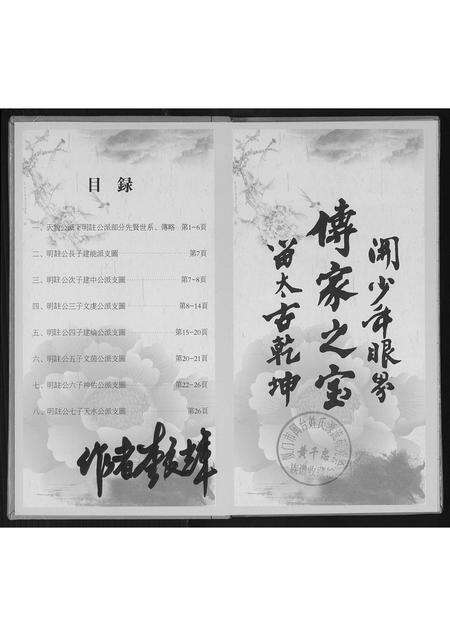 目録
一、天?公派下明註公派部分先賢世系、傳略 第1-6頁
二、明註公長子建能派支圖 第7頁
三、明註公次子建中公派支圖 第7-8頁
四、明註公三子文虔公派支圖 第8-14頁
五、明註公四子建綸公派支圖 第15-20頁
六、明註公五子文茵公派支圖 第20-21頁
七、明註公六子神佑公派支圖 第22-26頁
八、明註公七子天水公派支圖 第26頁
作者李
開少年眼界
傳家之宝
留太古乾坤
黄千忠